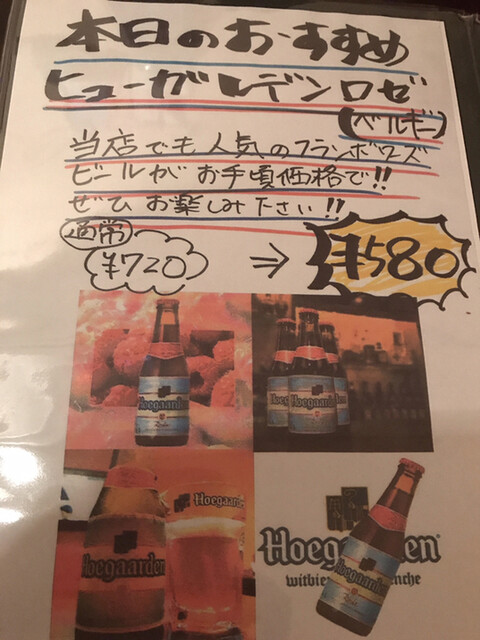 本日のおすすめ
ヒューガルデンロゼ
(ベルギー)
当店でも人気のフランボワーズ
ビールが お手頃価格で!!
ぜひ お楽しみ下さい!!
通常
¥720 ⇒ ¥580
Hoegaarden
Hoegaarden
Hoegaarden
Hoegaarden
Hoegaarden
Hoegaarden